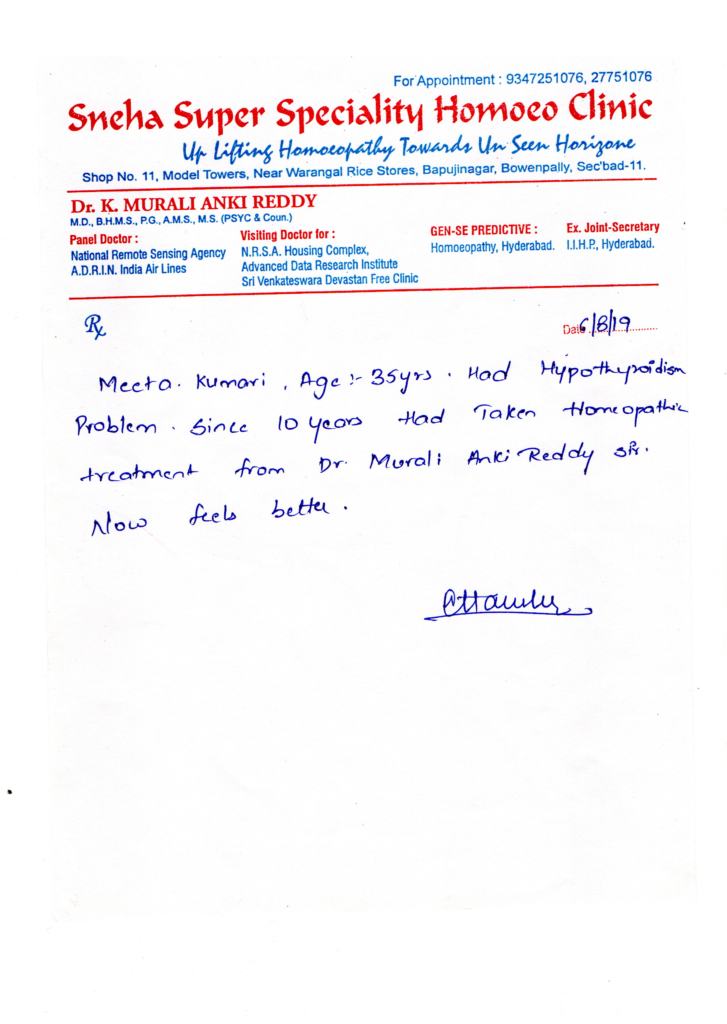 For Appointment : 9347251076, 27751076
Sneha Super Speciality Homoeo Clinic
Up Lifting Homoeopathy Towards Un Seen Horizone
Shop No. 11, Model Towers, Near Warangal Rice Stores, Bapujinagar, Bowenpally, Sec'bad-11.
Dr. K. MURALI ANKI REDDY
M.D., B.H.M.S., P.G., A.M.S., M.S. (PSYC & Coun.)
Panel Doctor :
National Remote Sensing Agency
A.D.R.I.N. India Air Lines
Visiting Doctor for :
N.R.S.A. Housing Complex,
Advanced Data Research Institute
Sri Venkateswara Devastan Free Clinic
GEN-SE PREDICTIVE :
Homoeopathy, Hyderabad.
Ex. Joint-Secretary
I.I.H.P., Hyderabad.
Rx
Date 6/8/19
Meeta. Kumari, Age :- 35yrs. Had Hypothyroidism
Problem. Since 10 years Had Taken Homeopathic
treatment from Dr. Murali Anki Reddy sir.
Now feels better.